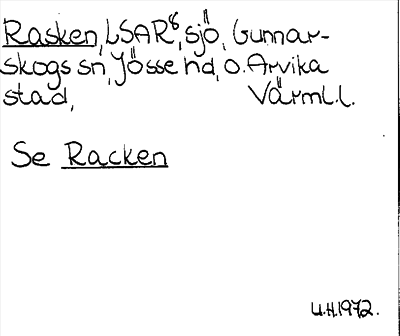 Rasken, LSAR⁸, sjö, Gunnar-
skogs sn, Jösse hd, o. Arvika
stad, Värml. l.
Se Racken
U.H. 1972.